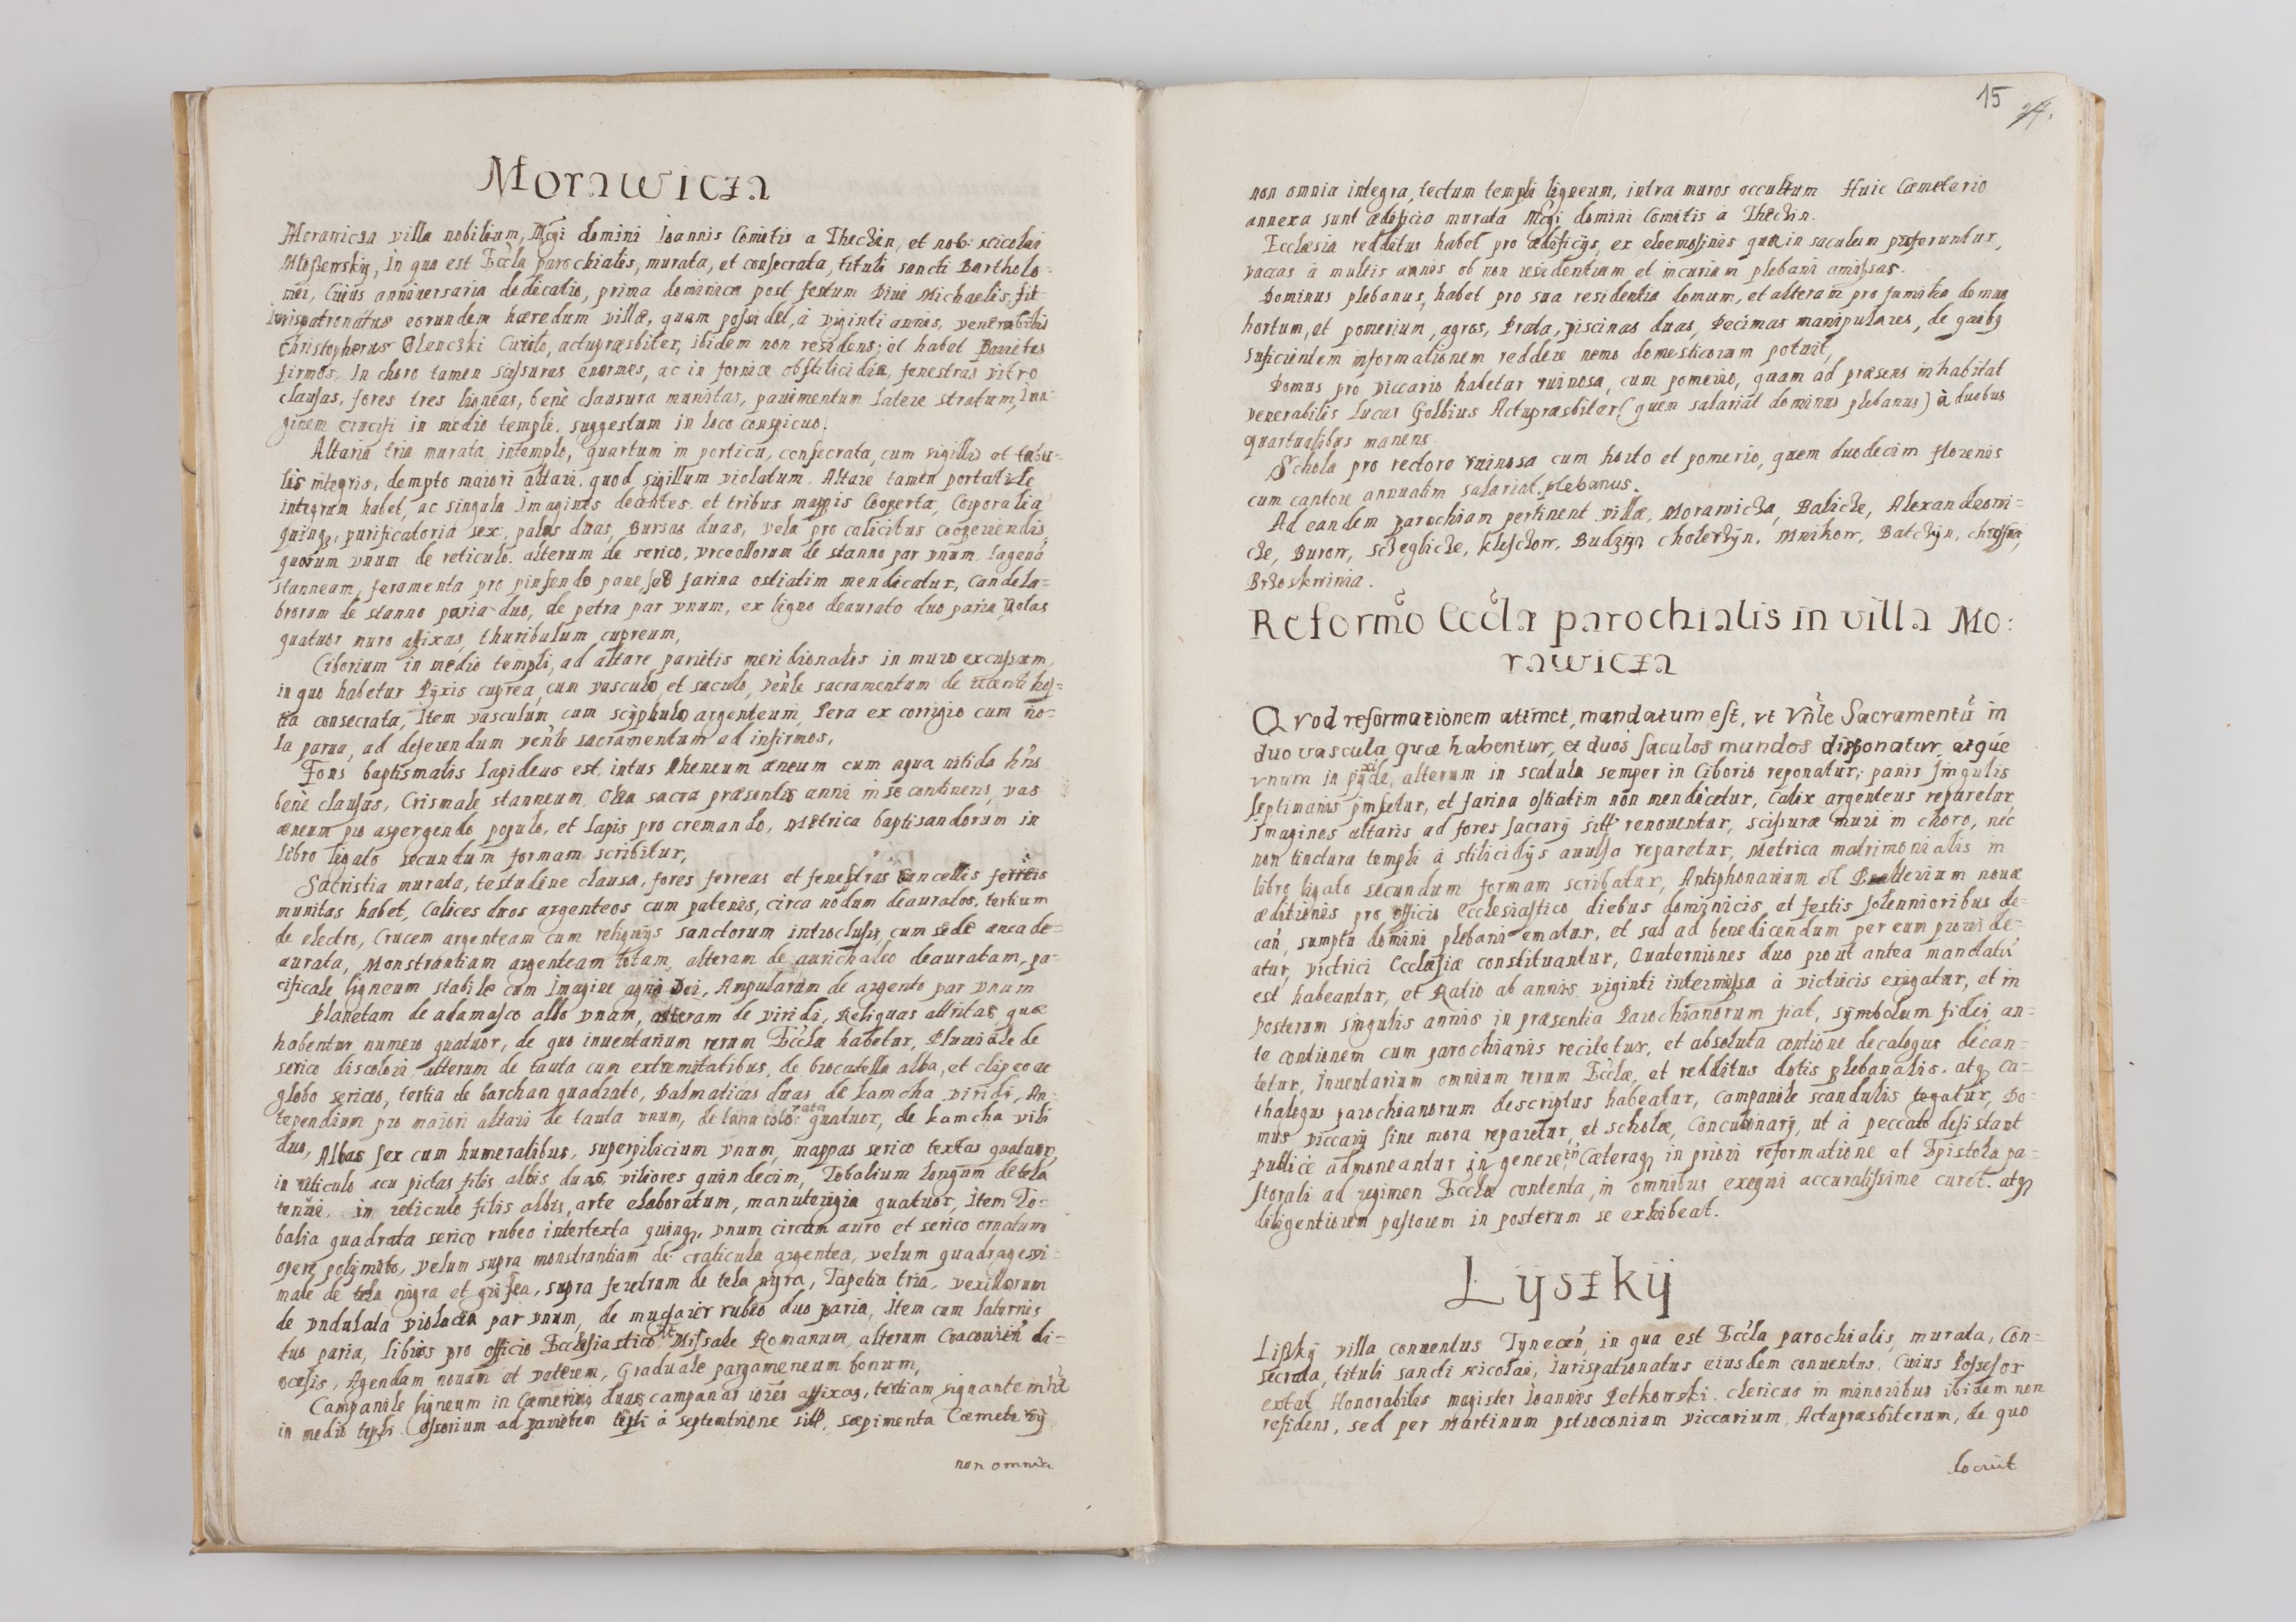 Morawicza
Morawicza villa nobilium, Mgci domini Ioannis Comitis a Theczin, et nob: Nicolai
in qua est Eccla parochialis, murata, et consecrata, tituli sancti Bartholo-
mei, Cuius anniversaria dedicatio, prima dominica post festum Divi Michaelis, fit
Iurispatronatus eorundem hæredum villæ, quam possidet, à viginti annis, venerabilis
Christopherus actupræsbiter, ibidem non residens; et habet Parietes
firmos, In choro tamen scissuras enormes, ac in fornice obstilicidia, fenestras vitro
clausas, fores tres ligneas, benè clausura munitas, pauimentum latere stratum, Ima-
ginem crucifi in medio templi, suggestum in loco conspicuo.
Altaria tria murata intemplo, quartum in porticu, consecrata, cum sigillis et tabu-
lis integris, dempto maiori altari, quod sigillum violatum. Altare tamen portatile
integrum habet, ac singula Imagines deantes et tribus mappis Cooperta, Corporalia
quinq, purificatoria sex, palas duas, Bursas duas, vela pro calicibus cooperiendis,
quorum vnum de reticulo, alterum de serico, vrceollorum de stanno par vnum, lagena
stanneam, feramenta pro pinsendo pane, sed farina ostiatim mendicatur, Candela-
brorum de stanno paria duo, de petra par vnum, ex ligno deaurato duo paria, Nolas
quatuor muro affixas, thuribulum cupreum,
Ciborium in medio templi, ad altare parietis meridionalis in muro excussum,
in quo habetur Pÿxis cuprea, cum vasculo, et saculo, venle sacramentum de recenti hos-
tia consecrata, Item vasculum cum scÿphulo argenteum, Pera ex corrigio cum no-
la parua, ad deferendum venle sacramentum ad infirmos,
Fons baptismalis lapideus est, intus Aheneum æneum cum aqua nitida hns
benè clausus, Crismale stanneum, Olea sacra præsentis anni in se continens, vas
æneum pro aspergendo populo, et lapis pro cremando, Metrica baptisandorum in
libro ligato secundum formam scribitur,
Sacristia murata, testudine clausa, fores ferreas et fenestras cancellis ferreis
munitas habet, Calices duos argenteos cum patenis, circa nodum deauratos, tertium
de electro, Crucem argenteam cum reliquijs sanctorum introclusis, cum sede ænea de-
aurata, Monstrantiam argenteam totam, alteram de aurichalco deauratam, pa-
cificale ligneum stabile cum Imagine agni Dei, Ampularum de argento par vnum
Planetam de adamasco albo vnam, alteram de viridi, Reliquas attritas quæ
habentur numero quatuor, de quo inuentarium rerum Eccla habetur, Pluuiale de
serico discolori, alterum de tauta cum extremitatibus, de brocatella alba, et clipeo ac
globo sericeo, tertia de barchan quadrato, Dalmaticas duas de kamcha viridi, An-
tependium pro maiori altari de tauta vnum, de lana colorata quatuor, de kamcha vili
duo, Albas sex cum humeralibus, superpilicium vnum, mappas serico textas quatuor,
in reticulo acu pictas filis albis duas, viliores quindecim, Tobalium longum de tela
tenue, in reticulo filis albis, arte elaboratum, manutergia quatuor, Item To-
balia quadrata serico rubeo intertexta quinq, vnum circum auro et serico ornatum
opere polimito, velum supra monstrantiam de craticula argentea, velum quadragesi-
male de tela nigra et grisea, supra feretrum de tela nigra, Tapetia tria, vexillorum
de vndulata violacea par vnum, de muchaier rubeo duo paria, Item cum laternis
duo paria, libros pro officio Ecclesiastico Missale Romanum, alterum Cracouien di-
ocæsis, Agendam nouam et veterem, Graduale pargameneum bonum,
Campanile ligneum in Cæmeterio duas campanas affixas, tertiam signantem hēt
in medio templi. Ossorium ad parietem à septentrione sitū, sæpimenta Cæmeterij
non omnia
15
non omnia integra, tectum templi ligneum, intra muros occultum Huic Cæmeterio
annexa sunt ædificia murata Mgci domini Comitis à Theczin.
Ecclesia redditus habet pro ædificijs, ex eleemosinis quæ in saculum proferuntur,
vaccas à multis annis ob non residentiam et incuriam plebani amissas.
Dominus plebanus, habet pro sua residentia domum, et alteram pro familia domus
hortum, et pomerium, agros, Prata, piscinas duas, Decimas manipulares, de quibq
suficientem informationem reddere nemo domesticorum potuit,
Domus pro viccario habetur ruinosa, cum pomerio, quam ad præsens inhabitat
venerabilis Lucas Golbius Actupræsbiter (quem salariat dominus plebanus) à duobus
quartuasibus manens.
Schola pro rectore ruinosa cum horto et pomerio, quem duodecim florenis
cum cantore annuatim salariat plebanus.
Ad eandem parochiam pertinent villæ, Morawicza, Balicze, Alexandrowi-
cze, Burow, Sczeglicze, Kleschow, Budzÿn cholerzÿn, Mnikow, Batczÿn, chrosna,
Brzoskwinia.
Reformo Eccla parochialis in villa Mo:
rawicza
Qvod reformationem attinet, mandatum est, vt Vnle Sacramentū in
duo vascula quæ habentur, et duos saculos mundos disponatur, atque
vnum in pÿxide, alterum in scatula semper in Ciborio reponatur; panis singulis
septimanis pinsetur, et farina ostiatim non mendicetur, Calix argenteus reparetur,
Imagines altaris ad fores sacrarij sitū renouentur, scissuræ muri in choro, nec
non tinctura templi à stilicidijs auulsa reparetur, Metrica matrimonialis in
libro ligato secundum formam scribatur, Antiphonarium et Psalterium nouæ
æditionis pro officio Ecclesiastico diebus dominicis et festis solennioribus de-
can, sumptu domini plebani ematur, et sal ad benedicendum per eum proui de-
atur, victrici Ecclesiæ constituantur, Quaterniones duo prout antea mandatū
est habeantur, et Ratio ab annis viginti intermissa à victricis exigatur, et in
posterum singulis annis in præsentia Parochianorum fiat, sÿmbolum fidei an-
te contionem cum parochianis recitetur, et absoluta contione decalogus decan-
tetur, Inuentarium omnium rerum Ecclæ, et redditus dotis plebanalis, atq ca-
thalogus parochianorum descriptus habeatur, Campanile scandulis tegatur, Do-
mus viccarij sine mora reparetur, et scholæ, Concubinarij, ut à peccato desistant
publice admoneantur in genere, Cæteraq in priori reformatione et Epistola pa-
storali ad regimen Ecclæ contenta, in omnibus exequi accuratissime curet. atq
diligentiorem pastorem in posterum se exhibeat.
Lÿszkÿ
Liszkÿ villa conuentus Tynecen, in qua est Eccla parochialis, murata, Con-
secrata, tituli sancti Nicolai, Iurispatronatus eiusdem conuentus, Cuius Possesor
extat, Honorabilis magister Ioannis Petkowski, clericus in minoribus ibidem non
residens, sed per Martinum pstroconium viccarium, Actupræsbiterum, de quo